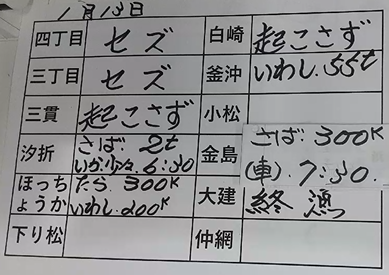 1月13日
四丁目 セズ 白崎 起こさず
三丁目 セズ 釜沖 いわし.55t
三貫 起こさず 小松
汐折 さば.2t 金島 さば.300K
いか少々.6:30 (車).7:30.
ほっち たら.300K 大建 終漁
ょうか いわし.200K
下り松 仲網